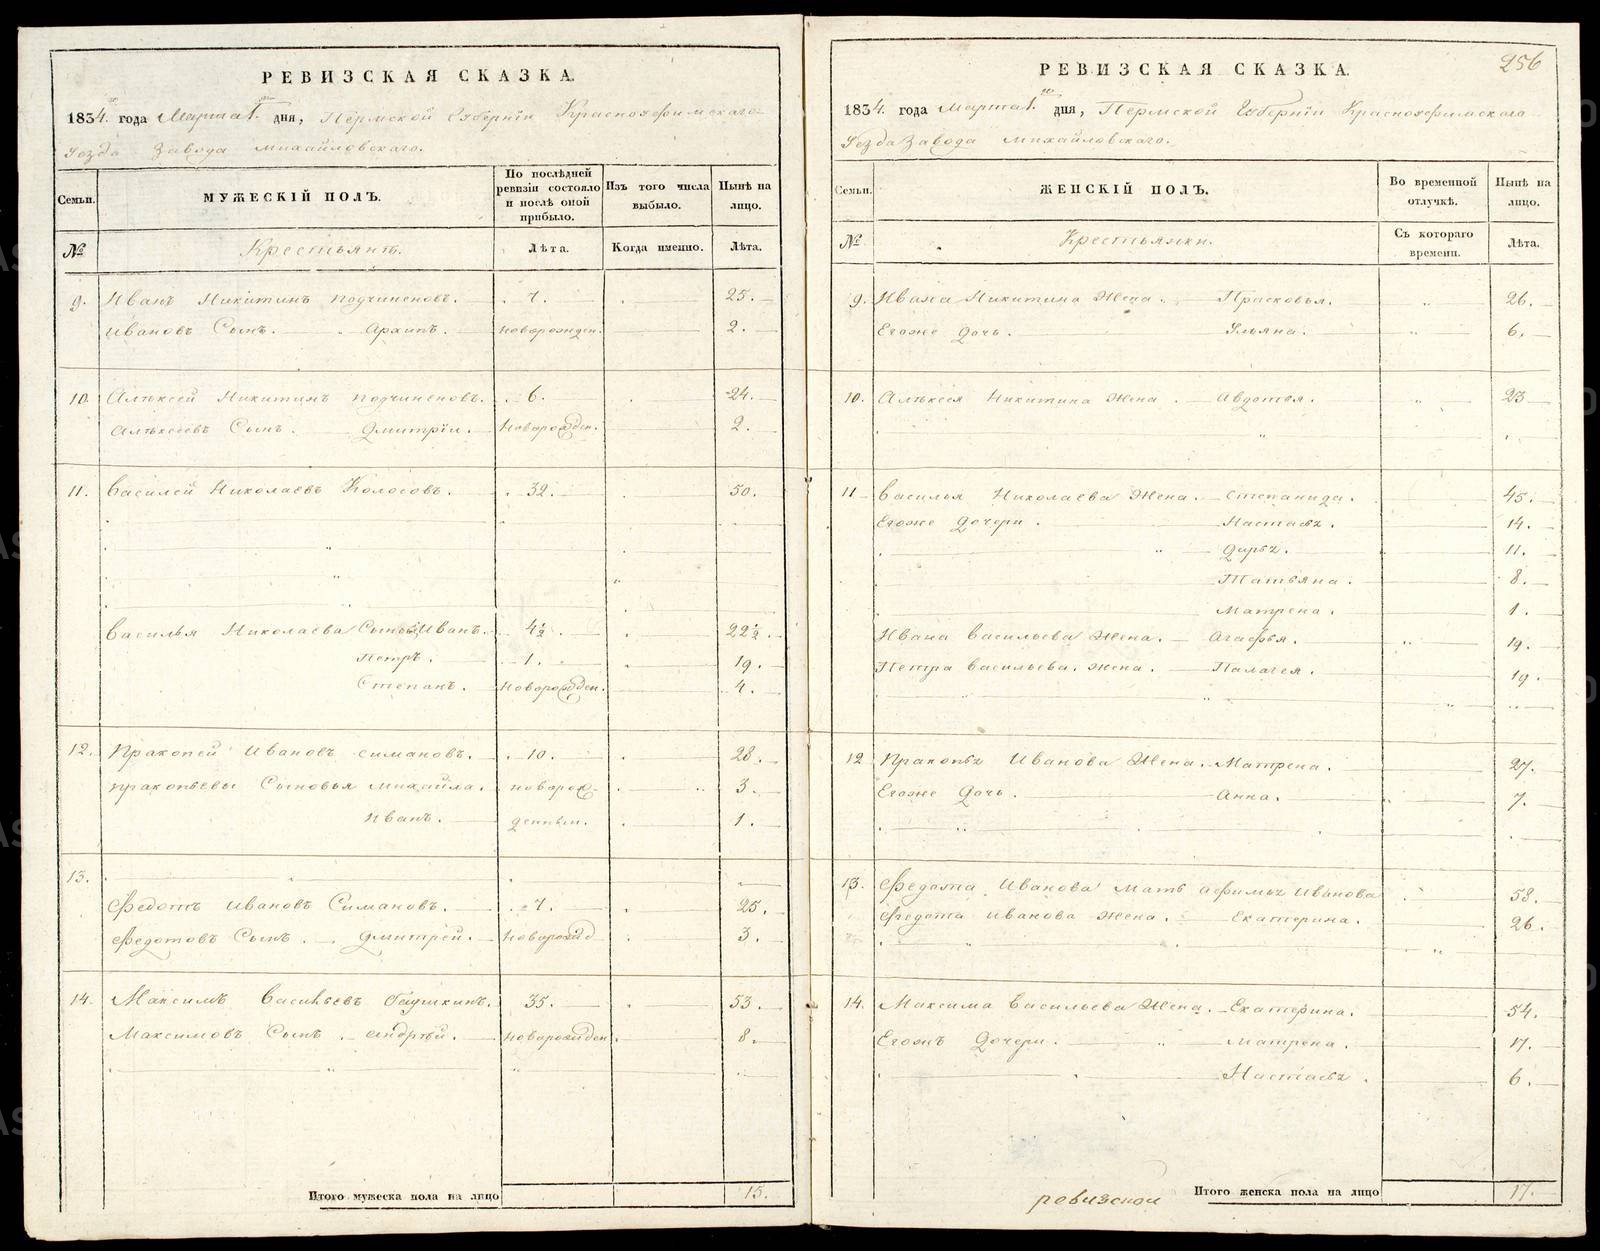 РЕВИЗСКАЯ СКАЗКА.
1834. года Марта 1. дня, Пермской Губернiи Красноуфимскаго
Уезда Завода Михайловскаго.
Семьи. МУЖЕСКIЙ ПОЛЪ. По последней ревизiи состояло и послѣ оной прибыло. Изъ того числа выбыло. Нынѣ на лицо.
№ Крестьянъ. Лѣта. Когда именно. Лѣта.
9. Иванъ Никитинъ Подчиненовъ. 7. 25.
Ивановъ Сынъ. Архипъ. новорожден. 2.
10. Алѣксей Никитинъ Подчиненовъ. 6. 24.
Алѣксеевъ Сынъ. Дмитрiи. Новорожден. 2.
11. Василей Николаевъ Колосовъ. 32. 50.
Василья Николаева Сыновья Иванъ. 4½. 22½.
Петръ. 1. 19.
Степанъ. Новорожден. 4.
12. Пракопей Ивановъ Симановъ. 10. 28.
Пракопьевы Сыновья Михайла. новорож- 3.
Иванъ. денныи. 1.
13.
Федотъ Ивановъ Симановъ. 7. 25.
Федотовъ Сынъ. Дмитрей. Новорожд 3.
14. Максимъ Васильевъ Глушкинъ. 35. 53.
Максимовъ Сынъ. Андрѣй. Новорожден. 8.
Итого мужеска пола на лицо 15.
256
РЕВИЗСКАЯ СКАЗКА.
1834. года Марта 1. дня, Пермской Губернiи Красноуфимскаго
Уезда Завода Михайловскаго.
Семьи. ЖЕНСКIЙ ПОЛЪ. Во временной отлучкѣ. Нынѣ на лицо.
№ Крестьянки. Съ котораго времени. Лѣта.
9. Ивана Никитина Жена. Прасковья. 26.
Егоже Дочь. Ульяна. 6.
10. Алѣксея Никитина Жена. Авдотья. 23
11 Василья Николаева Жена. Степанида. 45.
Егоже Дочери. Настасья. 14.
Дарья. 11.
Татьяна. 8.
Матрена. 1.
Ивана Васильева Жена. Агафья. 19.
Петра Васильева Жена. Палагея. 19.
12 Пракопья Иванова Жена. Матрена. 27.
Егоже Дочь. Анна. 7.
13. Федота Иванова Мать Афимья Иванова 58.
Федота Иванова Жена. Екатерина. 26.
14. Максима Васильева Жена. Екатерина. 54.
Егожъ Дочери. Матрена. 17.
Настасья. 6.
ревизской Итого женска пола на лицо 17.